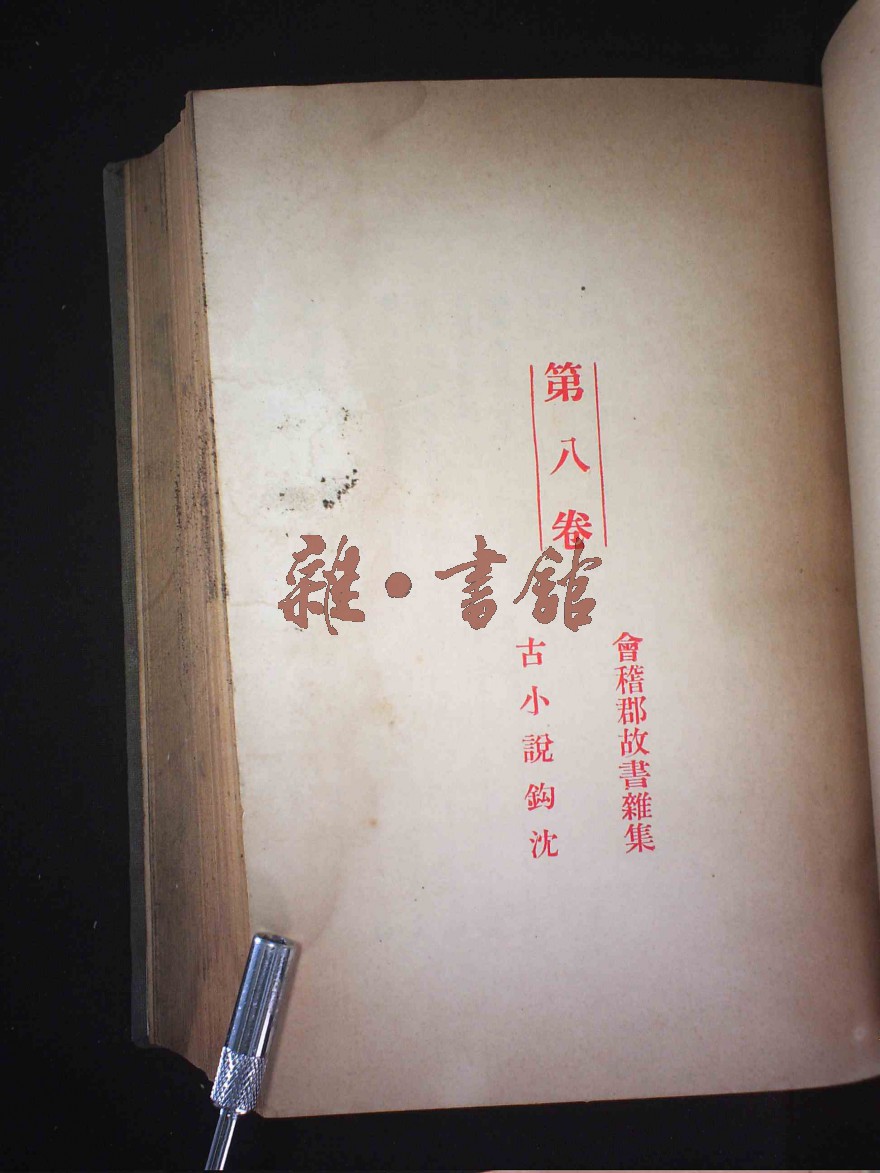 第八卷
會稽郡故書雜集
古小說鈎沈
雜•書館